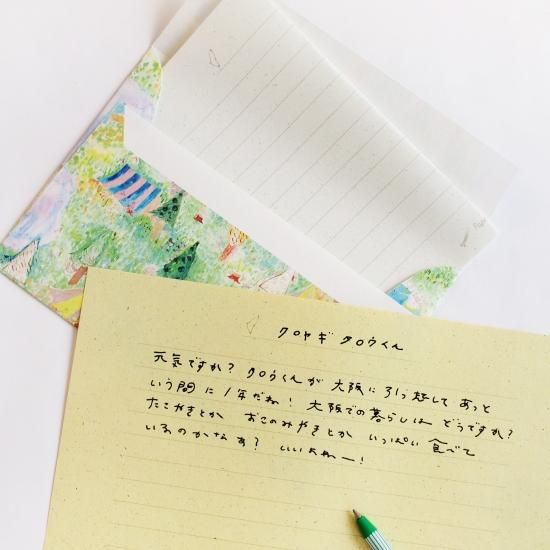 クロヤギ タロウくん
元気ですか? タロウくんが 大阪に引っ越して あっと
いう間に 1年だね! 大阪での暮らしは どうですか?
たこやきとか おこのみやきとか いっぱい 食べて
いるのかなぁ? いいよねー!